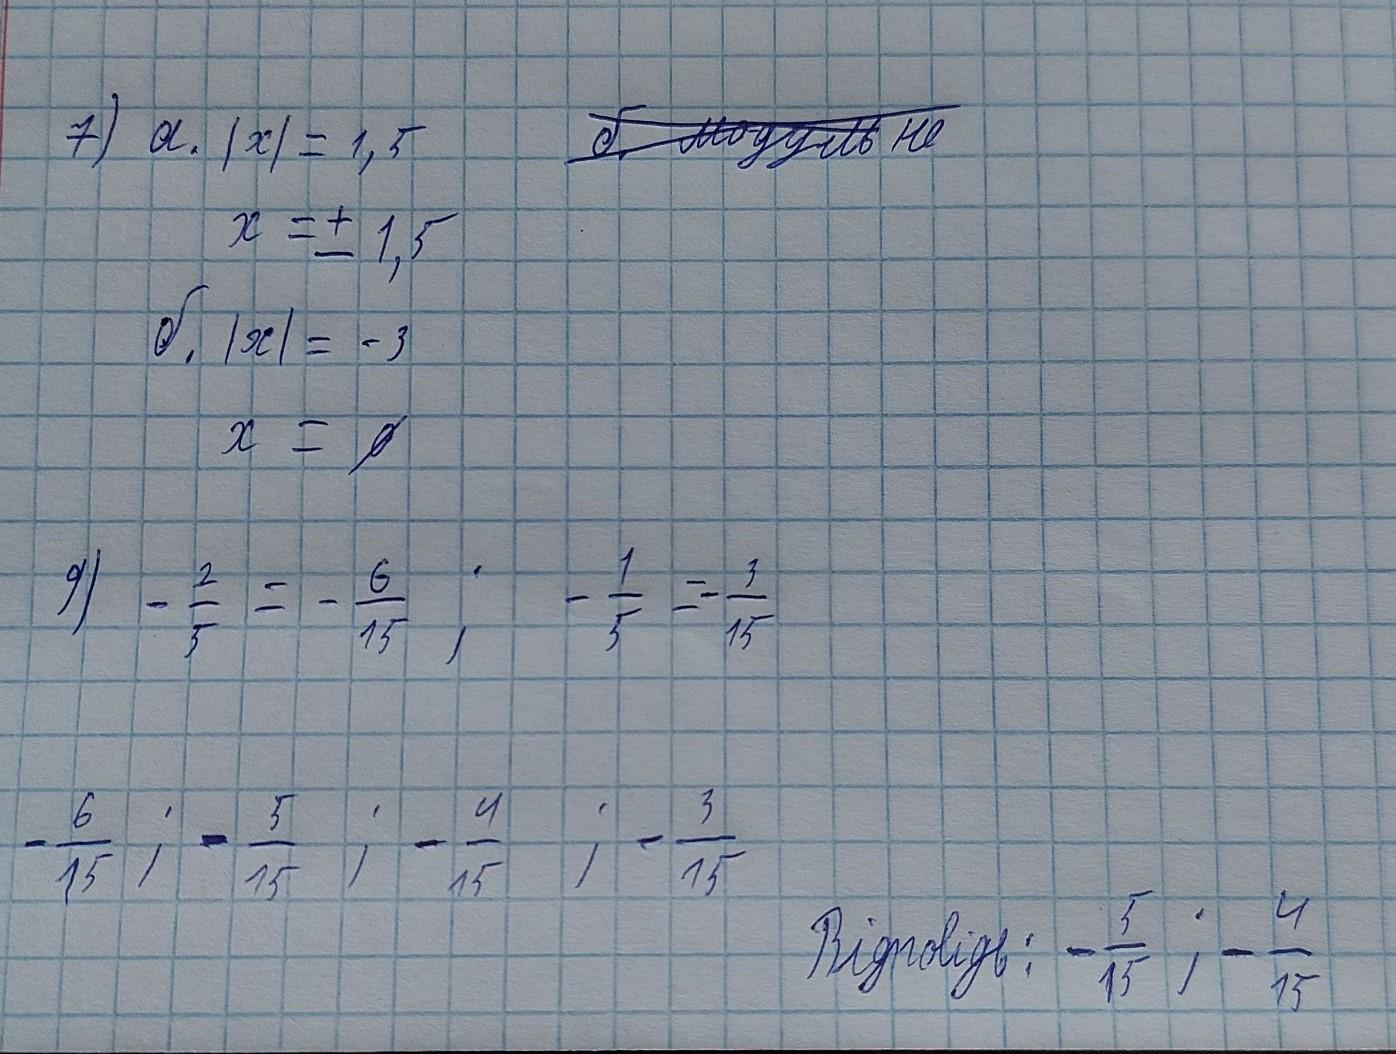 7) а. |x| = 1,5
б. модуль не
x = ± 1,5
б. |x| = -3
x = ∅
9) - 2/5 = - 6/15 ; - 1/5 = - 3/15
- 6/15 ; - 5/15 ; - 4/15 ; - 3/15
Відповідь: - 5/15 ; - 4/15